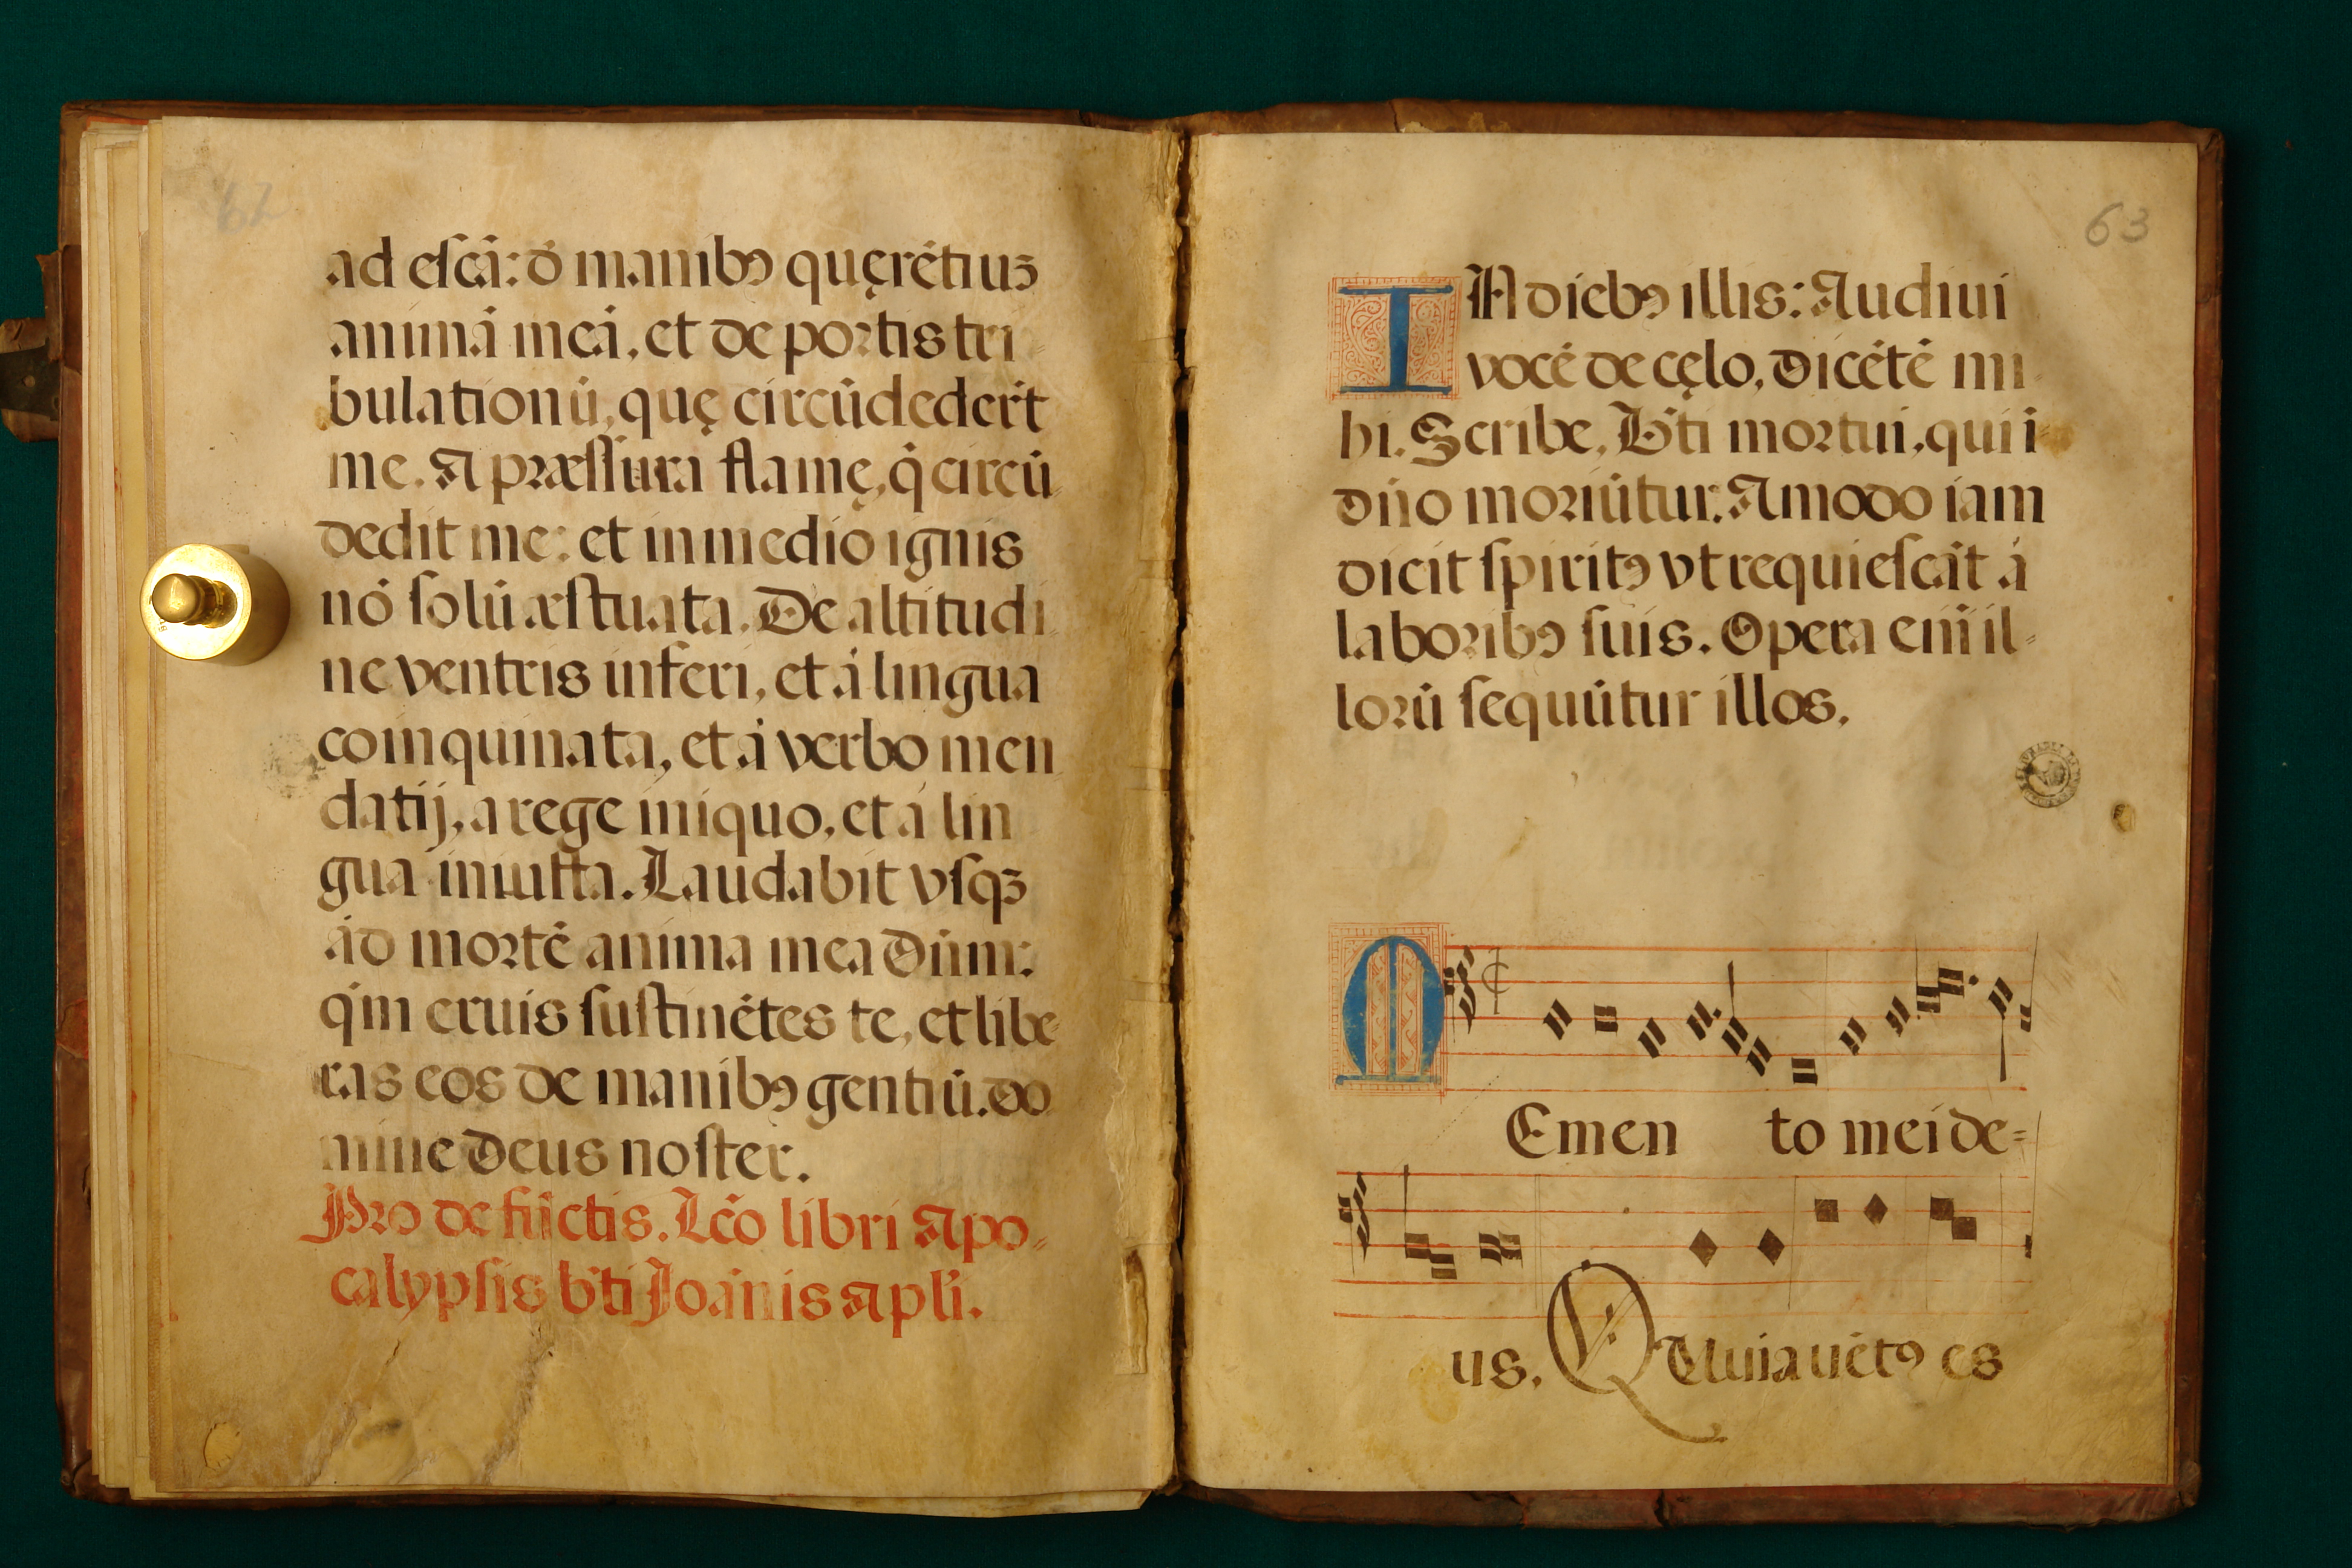 62
ad escā: ō manibꝯ quęrētiuꝫ
animā meā, et de portis tri-
bulationū, quę circūdederūt
me. A præssura flamę, q̇ circū-
dedit me: et in medio ignis
nō solū æstuata. De altitudi-
ne ventris inferi, et á lingua
coinquinata, et á verbo men
datij, a rege iniquo, et á lin
gua iniusta. Laudabit vsqꝫ
ád mortē anima mea Dūm:
qm̄ eruis sustinētes te, et libe-
ras eos de manibꝯ gentiū. do
mine Deus noster.
Pro defūctis. Lc̄o libri Apo-
calypsis bt̄i Joānis apli.
63
IN diebꝯ illis: Audiui
vocē de cęlo, dicētē mi-
hi. Scribe, Bt̄i mortui, qui ī
dn̄o moriūtur: Amodo iam
dicit spiritꝯ vt requiescāt á
laboribꝯ suis. Opera em̄ il-
lorū sequūtur illos.
MEmen to mei de-
us. QUuia uētꝯ es